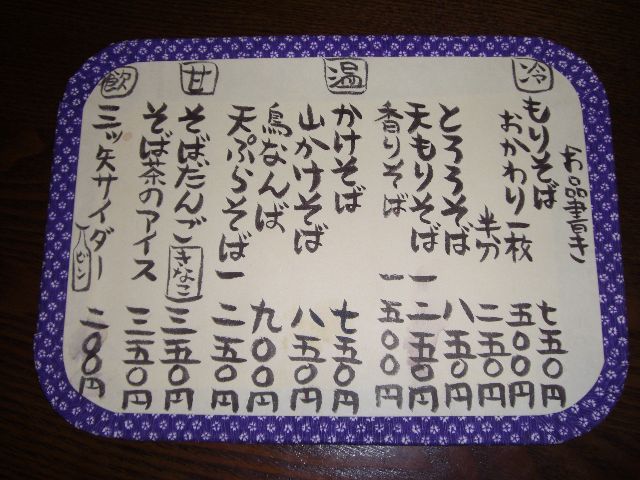 お品書き
冷
もりそば 七五〇円
おかわり一枚 五〇〇円
半分 二五〇円
とろろそば 八五〇円
天もりそば 一二五〇円
香りそば 一五〇〇円
温
かけそば 七五〇円
山かけそば 八五〇円
鳥なんば 九〇〇円
天ぷらそば 一二五〇円
甘
そばだんご きなこ 三五〇円
そば茶のアイス 三五〇円
飲
三ッ矢サイダー 二〇〇円